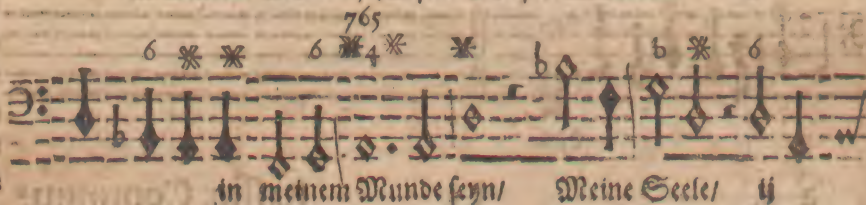 765
6 * * 6 * 4 * * b * 6
in meinem Munde seyn/ Meine Seele/ ij